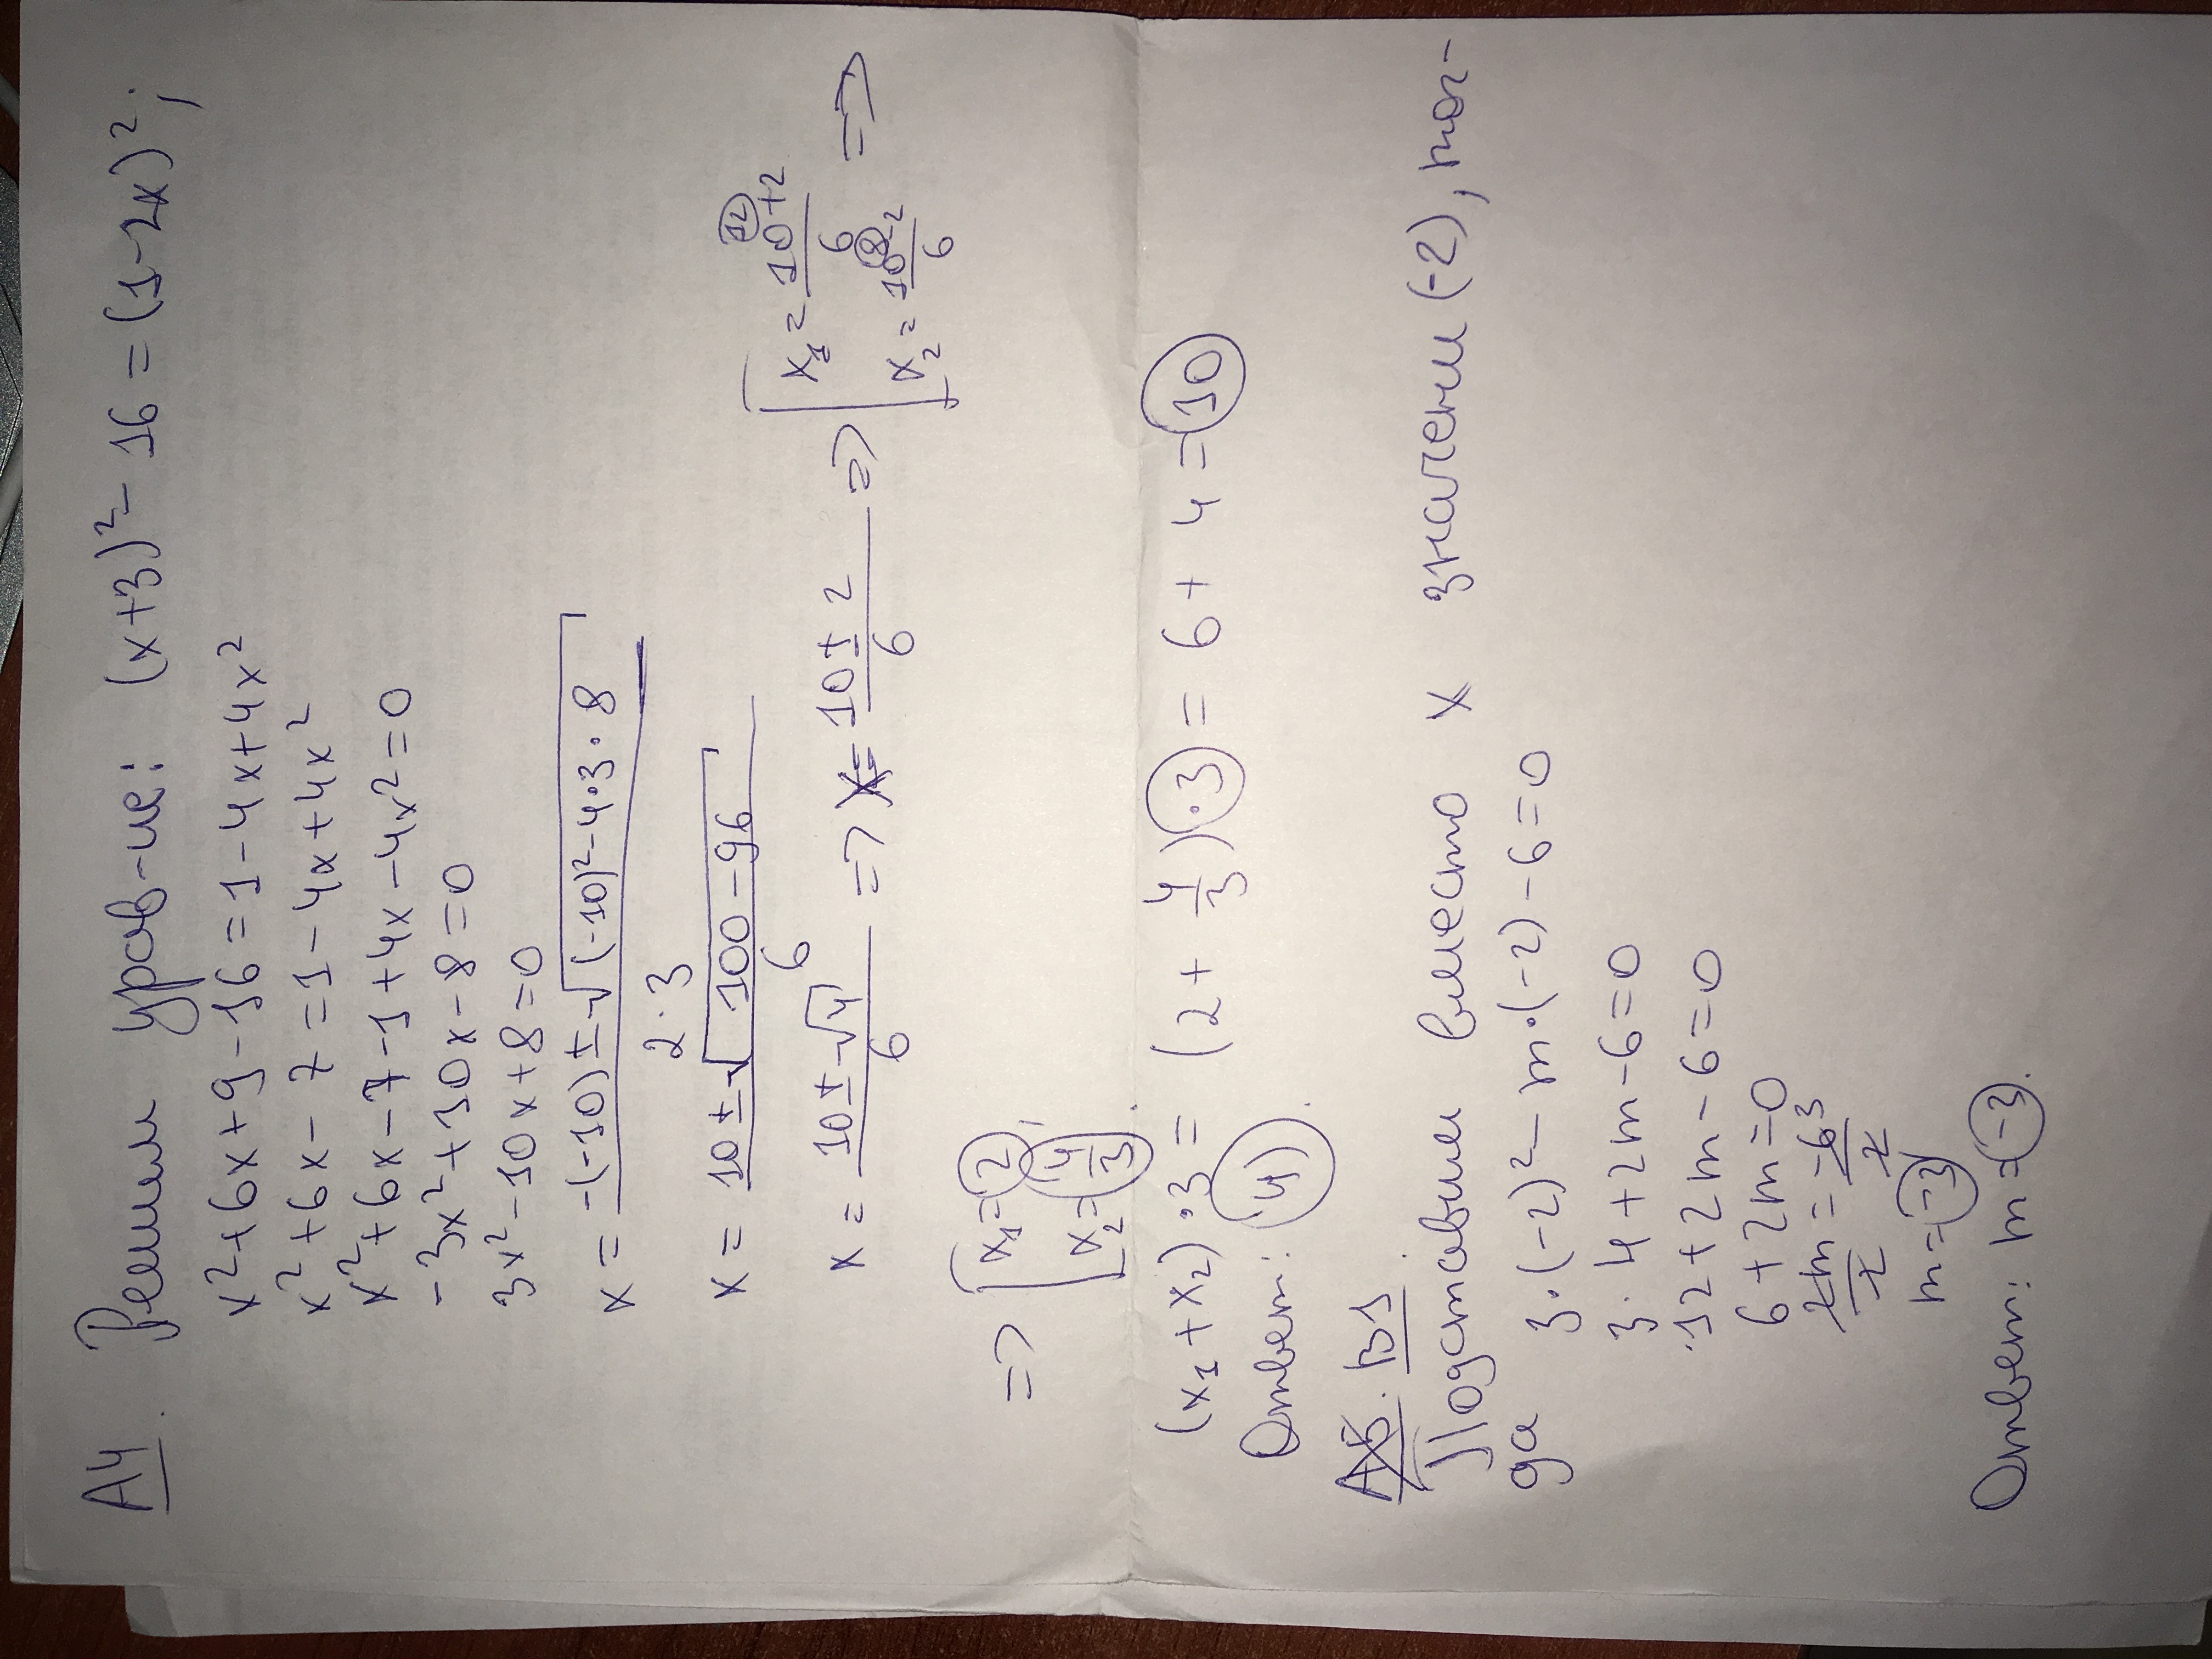 A4. Решим урав-ие: (x+3)² - 16 = (1-2x)²;
x²+6x+9-16=1-4x+4x²
x²+6x-7=1-4x+4x²
x²+6x-7-1+4x-4x²=0
-3x²+10x-8=0
3x²-10x+8=0
x = (-(-10)±√((-10)²-4·3·8))/(2·3)
x = (10±√(100-96))/6
x = (10±√4)/6 => x = (10±2)/6 => [x₁ = (10+2)/6 (12) [x₂ = (10-2)/6 (8) =>
=> [x₁=2; [x₂=4/3.
(x₁+x₂)·3 = (2+4/3)·3 = 6+4=10
Ответ: 4).
A5. B1.
Подставим вместо x значени (-2), тог-
да 3·(-2)²-m·(-2)-6=0
3·4+2m-6=0
12+2m-6=0
6+2m=0
2m/2 = -6/2 3
m=-3
Ответ: m=-3.